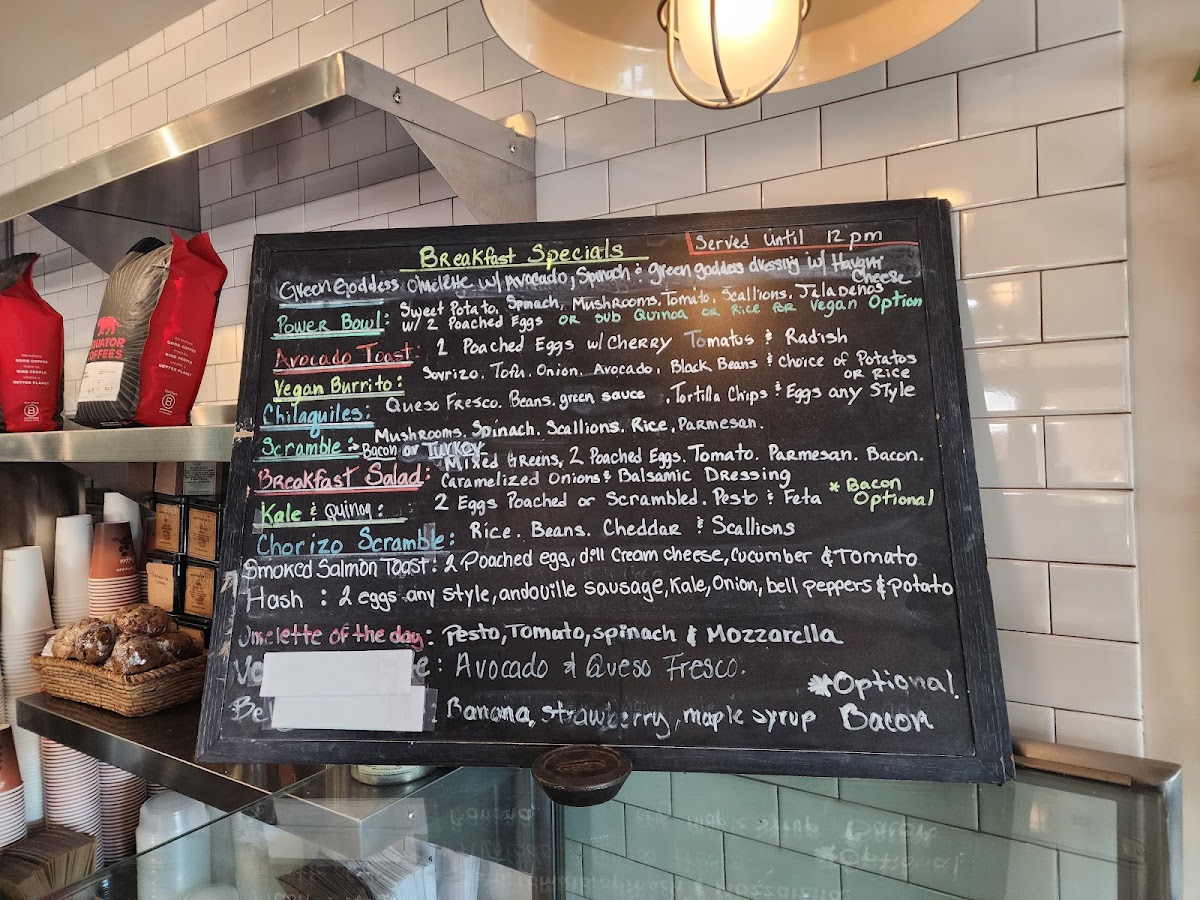 Breakfast Specials
Served Until 12 pm
Green Goddess Omelette w/ Avocado, Spinach & green goddess dressing w/ Havarti
Cheese
Power Bowl: Sweet Potato, Spinach, Mushrooms, Tomato, Scallions, Jalapeños
w/ 2 Poached Eggs OR SUB Quinoa OR RICE FOR Vegan Option
Avocado Toast: 2 Poached Eggs w/ Cherry Tomatos & Radish
Vegan Burrito: Soyrizo. Tofu. Onion. Avocado, Black Beans & Choice of Potatos
or Rice
Chilaquiles: Queso Fresco. Beans. green sauce, Tortilla Chips & Eggs any Style
Scramble: Mushrooms. Spinach. Scallions. Rice, Parmesan.
Bacon or Turkey
Breakfast Salad: Mixed Greens, 2 Poached Eggs. Tomato. Parmesan. Bacon.
Caramelized Onions & Balsamic Dressing
Kale & Quinoa: 2 Eggs Poached or Scrambled. Pesto & Feta
* Bacon
Optional
Chorizo Scramble: Rice. Beans. Cheddar & Scallions
Smoked Salmon Toast: 2 Poached egg, dill Cream cheese, Cucumber & Tomato
Hash: 2 eggs any style, andouille sausage, Kale, Onion, bell peppers & potato
Omelette of the day: Pesto, Tomato, spinach & Mozzarella
: Avocado & Queso Fresco.
: Banana, strawberry, maple syrup
*Optional
Bacon
GOOD COFFEE
BETTER PLANET
B
UATOR
COFFEES
GOOD COFFEE
BETTER PLANET
B